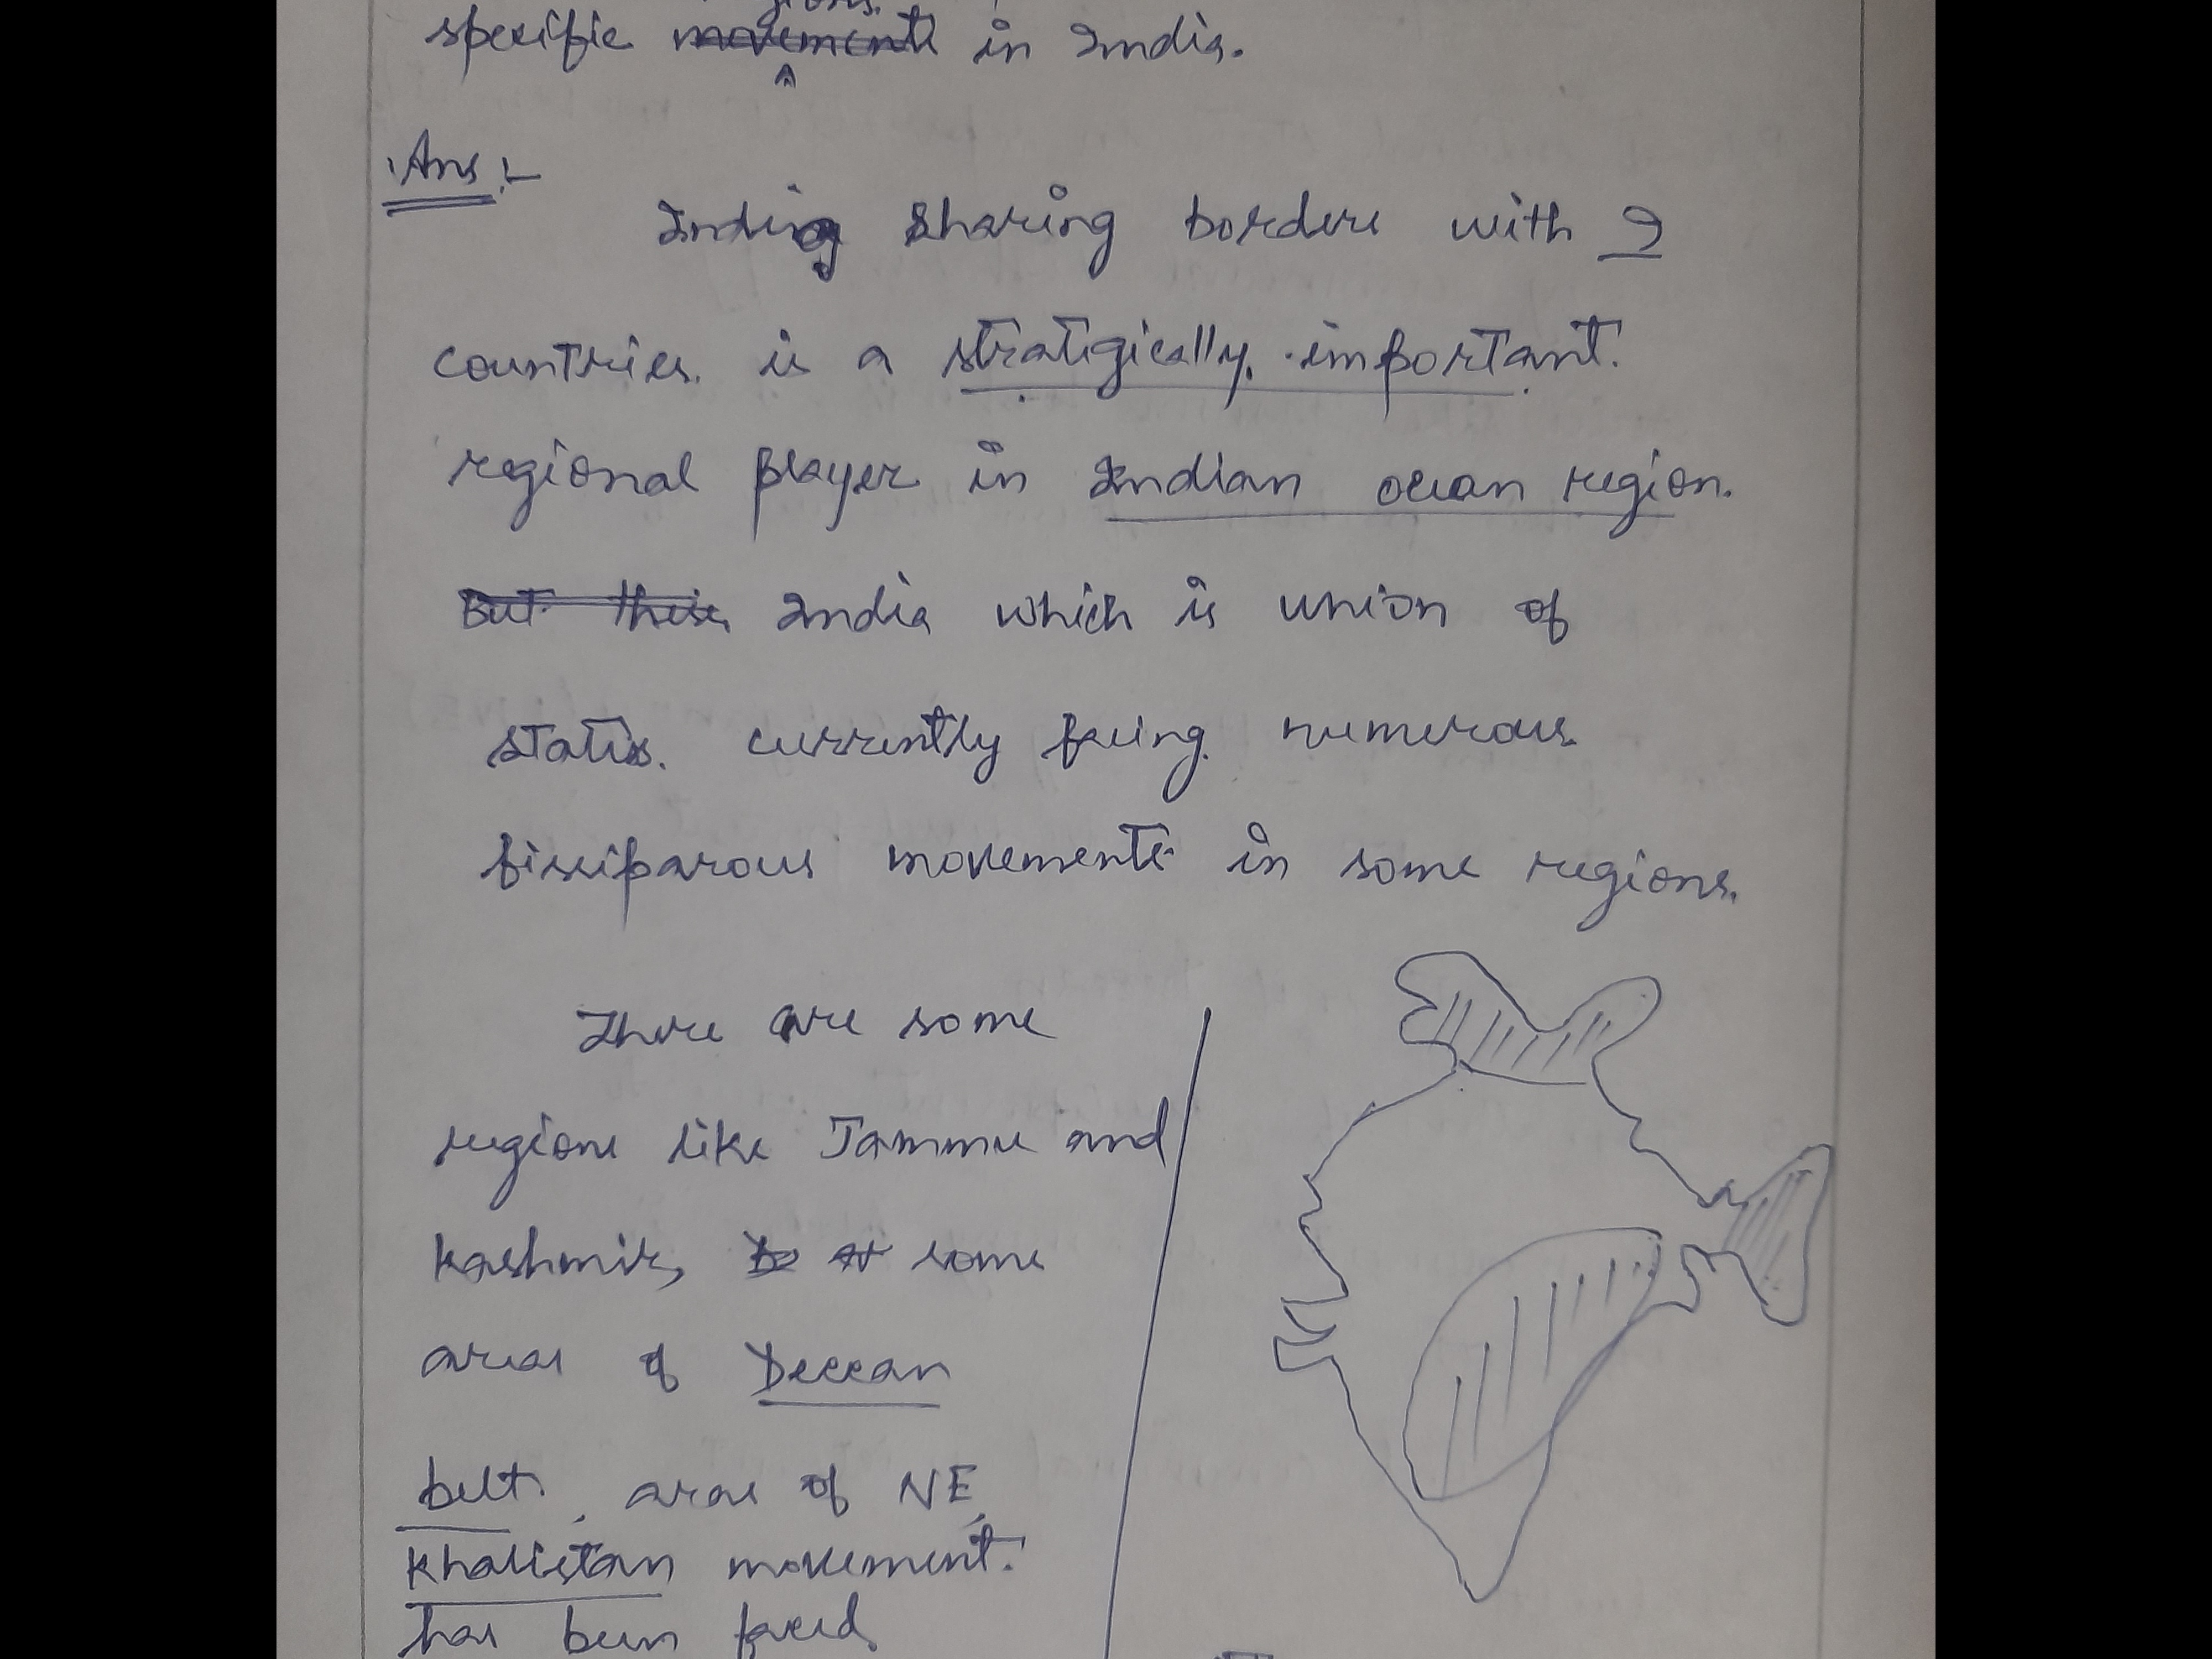 specific movements in India.
Ans:-
India, sharing borders with 9
countries is a stratigically important
regional player in Indian ocean region.
But these India which is union of
states. currently facing numerous
fissiparous movements in some regions.
There are some
regions like Jammu and
Kashmir, some
areas of Deccan
belt, areas of NE,
Khalistan movement.
has been faced